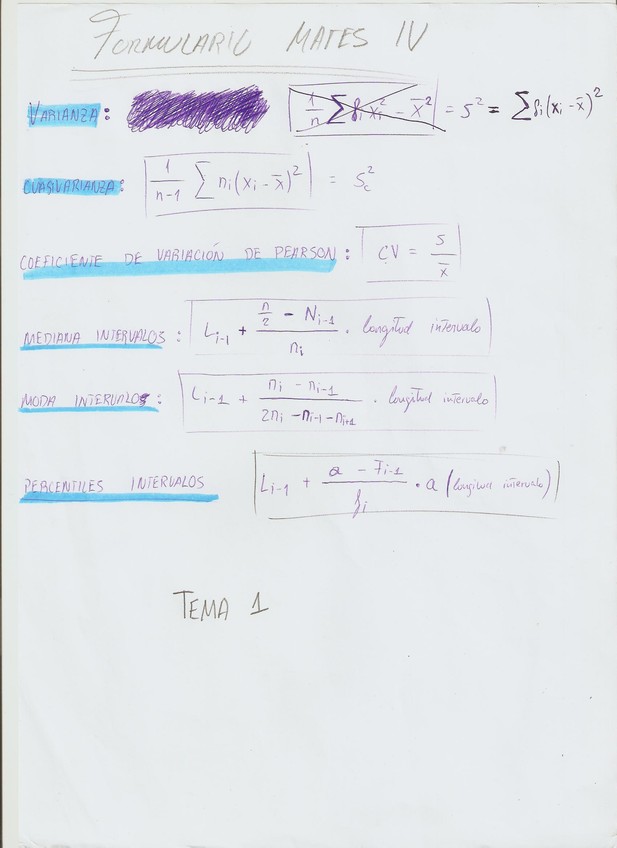 FORMULARIO MATES IV
VARIANZA: 1/n ∑ fi xi² - x̄² = S² = ∑ fi (xi - x̄)²
CUASIVARIANZA: 1/(n-1) ∑ ni (xi - x̄)² = Sc²
COEFICIENTE DE VARIACIÓN DE PEARSON: CV = S/x̄
MEDIANA INTERVALOS: Li-1 + (n/2 - Ni-1)/ni · longitud intervalo
MODA INTERVALOS: Li-1 + (ni - ni-1)/(2ni - ni-1 - ni+1) · longitud intervalo
PERCENTILES INTERVALOS Li-1 + (a - Fi-1)/fi · a (longitud intervalo)
TEMA 1